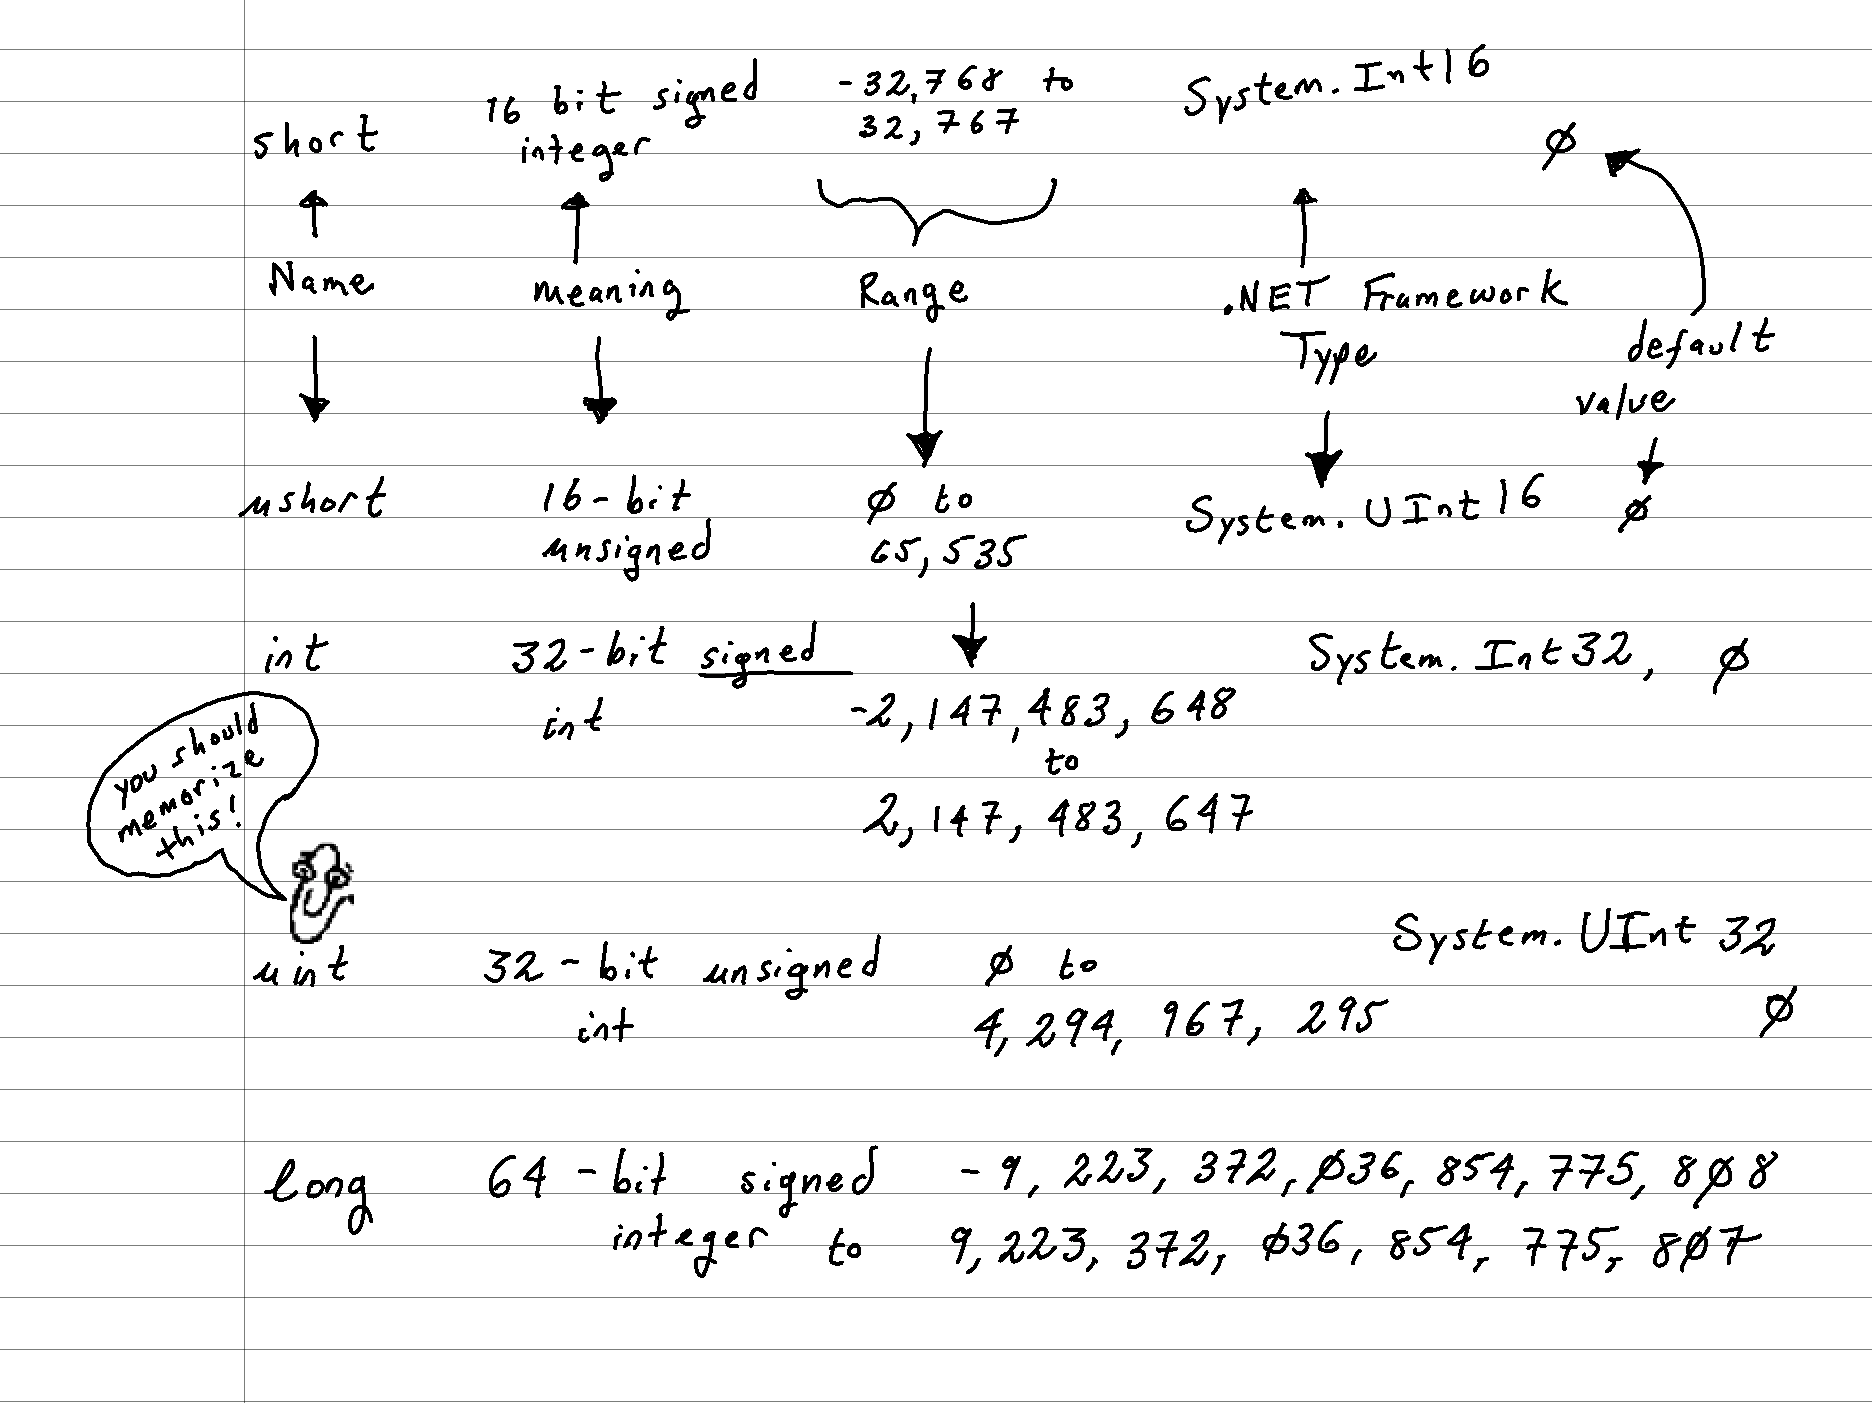 short 16 bit signed integer -32,768 to 32,767 System.Int16 Ø
Name meaning Range .NET Framework Type default value
ushort 16-bit unsigned Ø to 65,535 System.UInt16 Ø
int 32-bit signed int -2,147,483,648 to 2,147,483,647 System.Int32, Ø
you should
memorize
this!
uint 32-bit unsigned int Ø to 4,294,967,295 System.UInt 32 Ø
long 64-bit signed -9,223,372,Ø36,854,775,8Ø8
integer to 9,223,372,Ø36,854,775,8Ø7